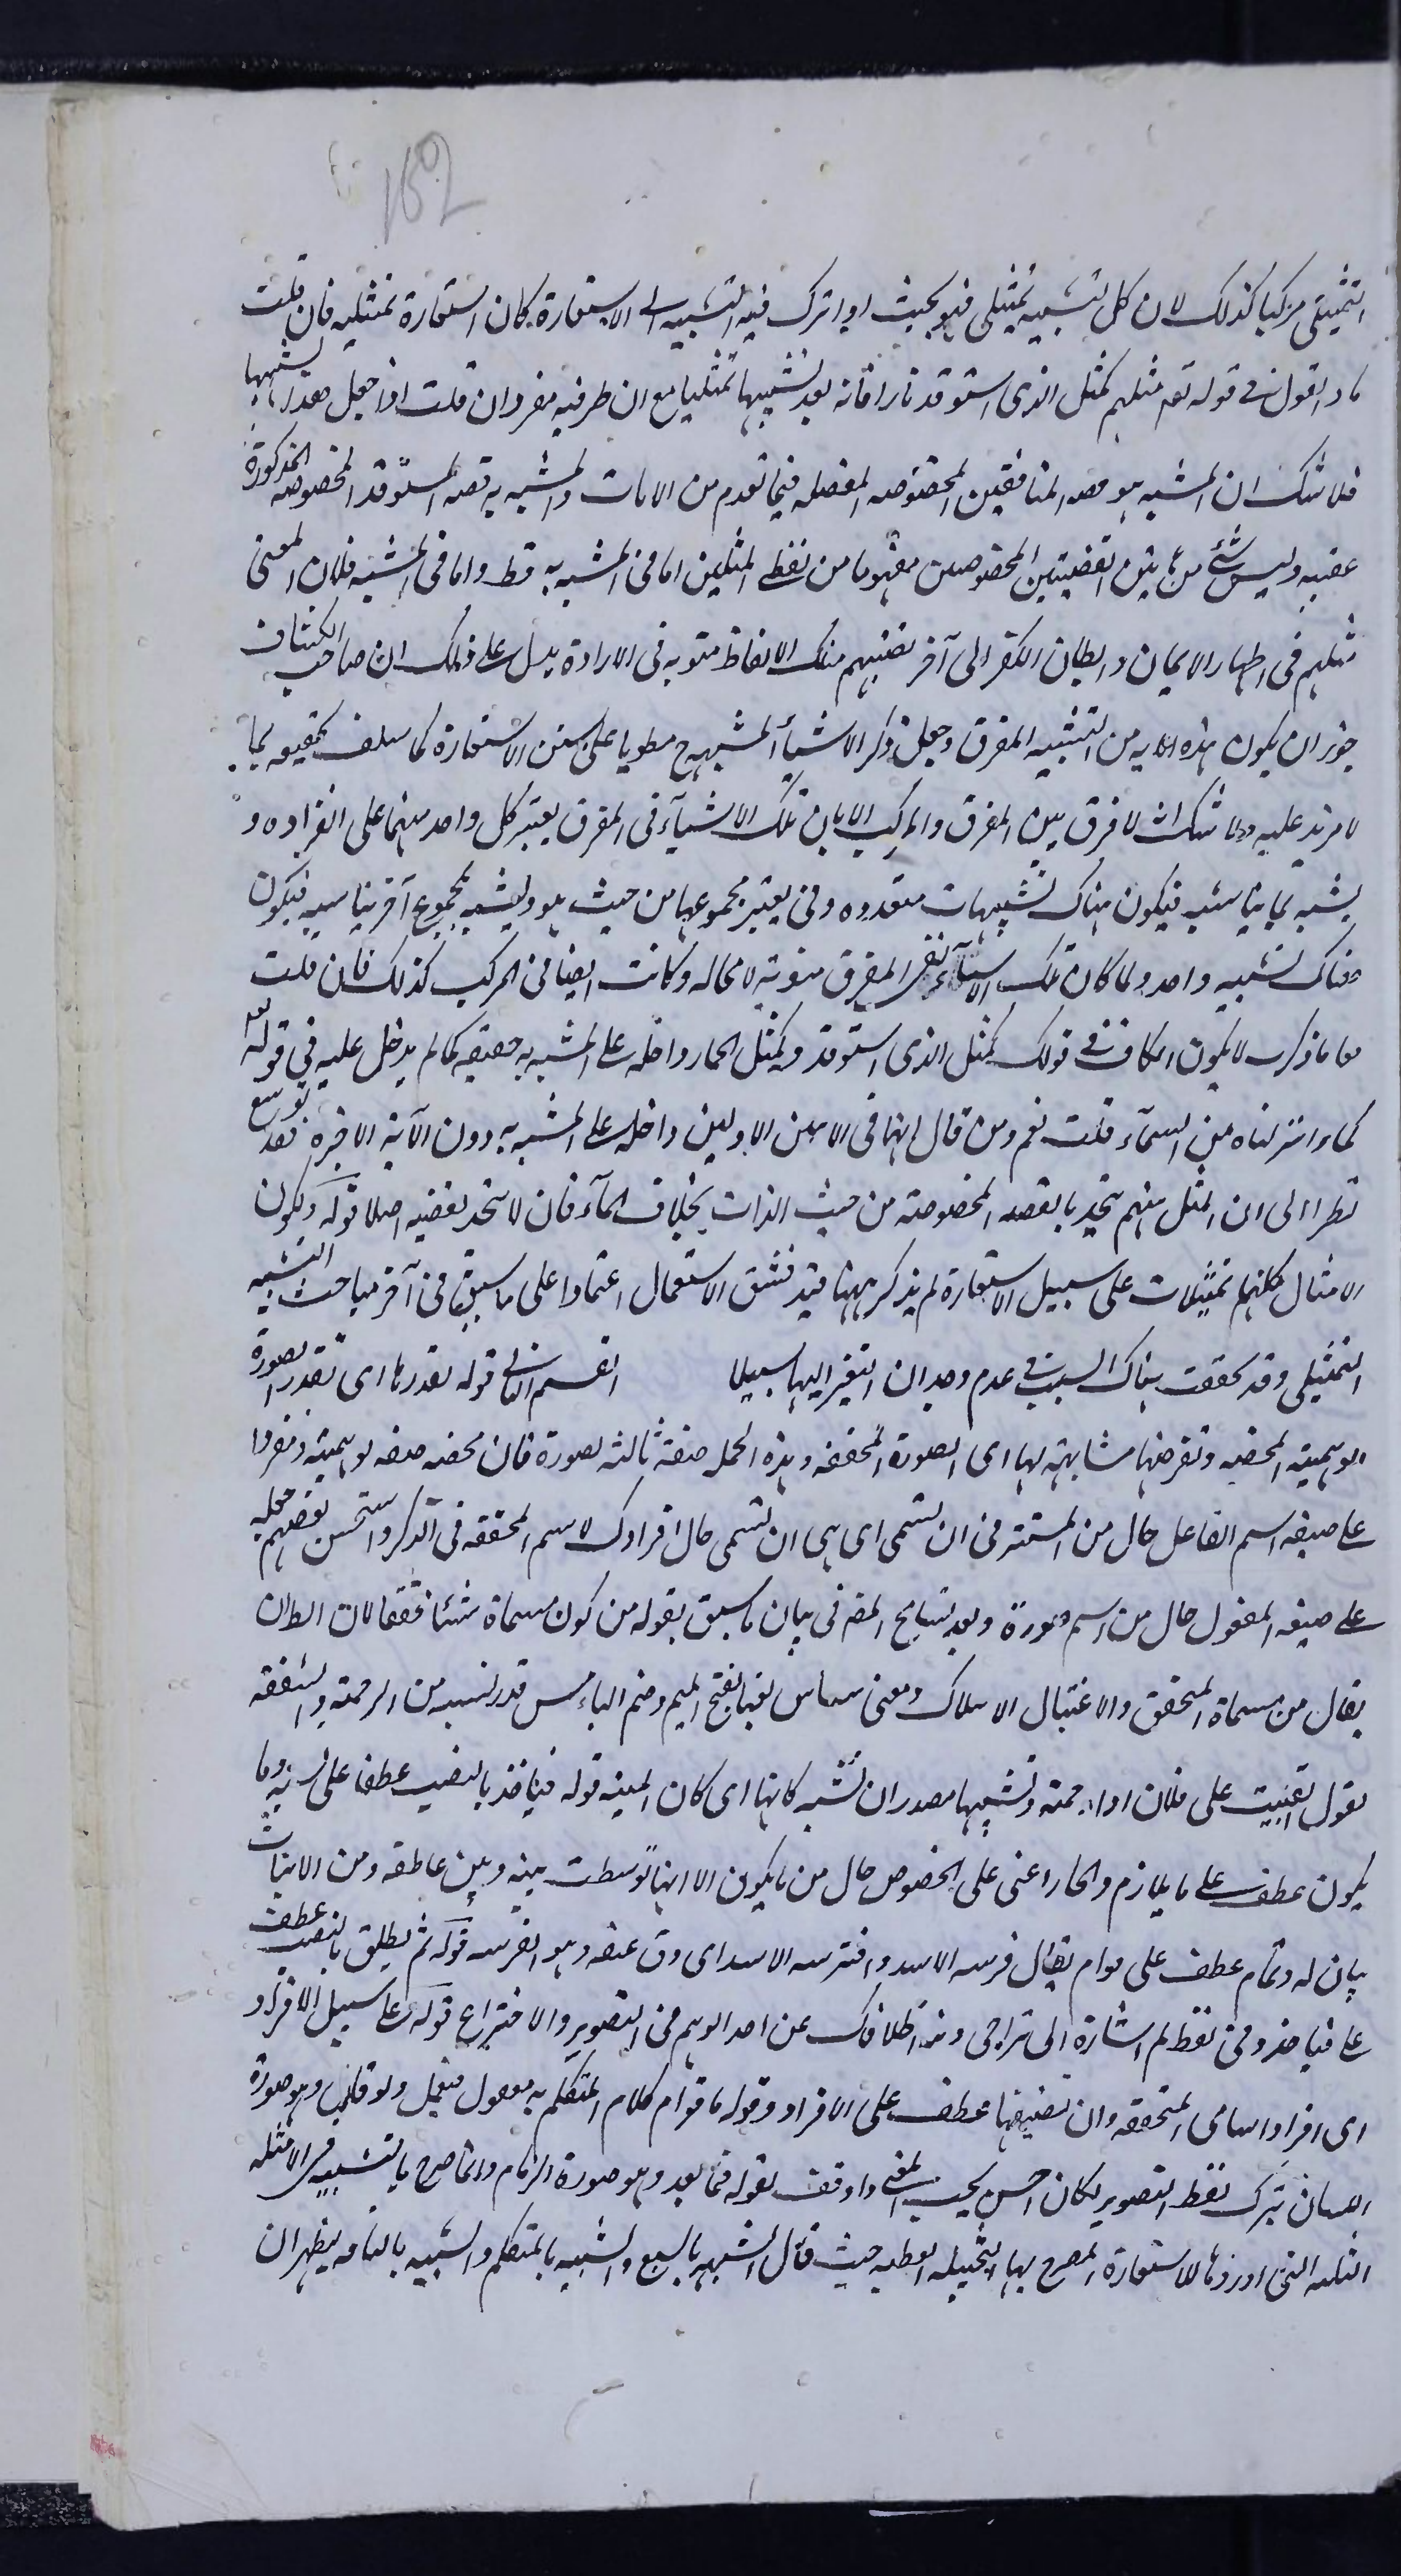 152
التمثيلى مركبا كذلك لان كل تشبيه تمثيلى فهو بحيث اذا ترك فيه التشبيه الى الاستعارة كان استعارة تمثيليه فان قلت
ماذا تقول فى قوله تعه مثلهم كمثل الذى استوقد نارا فانه يعد تشبيها تمثيليا مع ان طرفيه مفردان قلت اذا جعل هذا تشبيها
فلا شك ان المشبه هو قصه المنافقين المخصوصه المفصله فيما تقدم من الايات والمشبه به قصه المستوقد المخصوصه المذكورة
عقيبه وليس شئ من هاتين القضيتين المخصوصتين مفهوما من لفظى المثلين اما فى المشبه به فقط واما فى المشبه فلان المعنى
مثلهم فى اظهار الايمان وابطان الكفر الى آخر قضيتهم هناك الالفاظ منويه فى الارادة يدل على ذلك ان صاحب الكشاف
جوز ان يكون هذه الايه من التشبيه المفرق وجعل ذكر الاشياء المشبهه ح مطويا على سنن الاستعارة كما سلف تحقيقه بما
لا مزيد عليه ولا شك انه لا فرق بين المفرق والمركب الا بان تلك الاشيآء فى المفرق يعتبر كل واحد منها على انفراده و
يشبه بما يناسبه فيكون هناك تشبيهات متعدده وفى يعتبر مجموعها من حيث هو ويشبه بمجموع آخر يناسبه فيكون
هناك تشبيه واحد ولما كان تلك الاشيآء فى المفرق منوية لا محاله وكانت ايضا فى المركب كذلك فان قلت
فعلى ما ذكرت لا يكون الكاف فى قولك كمثل الذى استوقد وكمثل الحمار داخله على المشبه به حقيقه كما لم يدخل عليه فى قوله تعه
كماء انزلناه من السمآء قلت نعم ومن قال انها فى الايتين الاوليين داخله على المشبه به دون الآية الاخيره فقد توسع
نظرا الى ان المثل منهم يتحد بالقصه المخصوصة من حيث الذات بخلاف المآء فانه لا يتحد بقضيه اصلا قوله ويكون
الامثال كلها تمثيلات على سبيل الاستعارة لم يذكر ههنا قيد فشو الاستعمال اعتمادا على ما سبق فى آخر مباحث التشبيه
التمثيلى وقد تحققت هناك السبب فى عدم وجدان التغير اليها سبيلا القسم الثانى قوله تقدرها اى تقدر الصورة
الوهميه المحضه وتفرضها مشابهة لها اى الصورة المحققه وهذه الجمل صفة ثالثه لصورة فان محضه صفه لوهميه ومفردا
على صيغه اسم الفاعل حال من المستتر فى ان تسمى اى هى ان تسمى حال افرادك لاسم المحققه فى الذكر واستحسن بعضهم جعله
على صيغه المفعول حال من اسم صورة وبعد تسامح المص فى بيان ما سبق بقوله من كون مسماة شيئا متحققا لان الطران
يقال من مسماة المتحقق والاغتيال الاهلاك ومعنى بفتح الميم وضم الباء مس قدر من الرحمة والشفقه
يقول ابقيت على فلان اذا رحمته وتشبيهها مصدر ان تشبه كانها اى كان المنيه قوله فياخذ بالنصب عطفا على تشبه وما
يكون عطف على ما يلازم والجار اعنى على الخصوص حال من ما يكون الا انها توسطت بينه وبين عاطفه ومن الانياب
بيان له وتمام عطف على قوام يقال فرسه الاسد وافترسه الاسد اى دق عنقه وهو الفرسه قوله ثم يطلق بالنصب عطف
على فياخذ وفى لفظ ثم اشارة الى تراخى عن اخذ الوهم فى التصوير والاختراع قوله على سبيل الافراد
اى افراد اسامى المتحققه وان تضيفها عطف على الافراد وقوله ما قوام كلام المتكلم به معمول فيعمل ولو قلت وهو صورة
اللسان بترك لفظ التصوير لكان احسن بحسب المعنى واوفق بقوله فيما بعد وهو صورة الزمام وانما صرح بالتشبيه فى الامثله
الثلثه التى اوردها للاستعارة المصرح بها التخييله القطعيه حيث قال الشبيهه بالسبع والشبيه بالمتكلم والشبيه بالناقه ليظهر ان